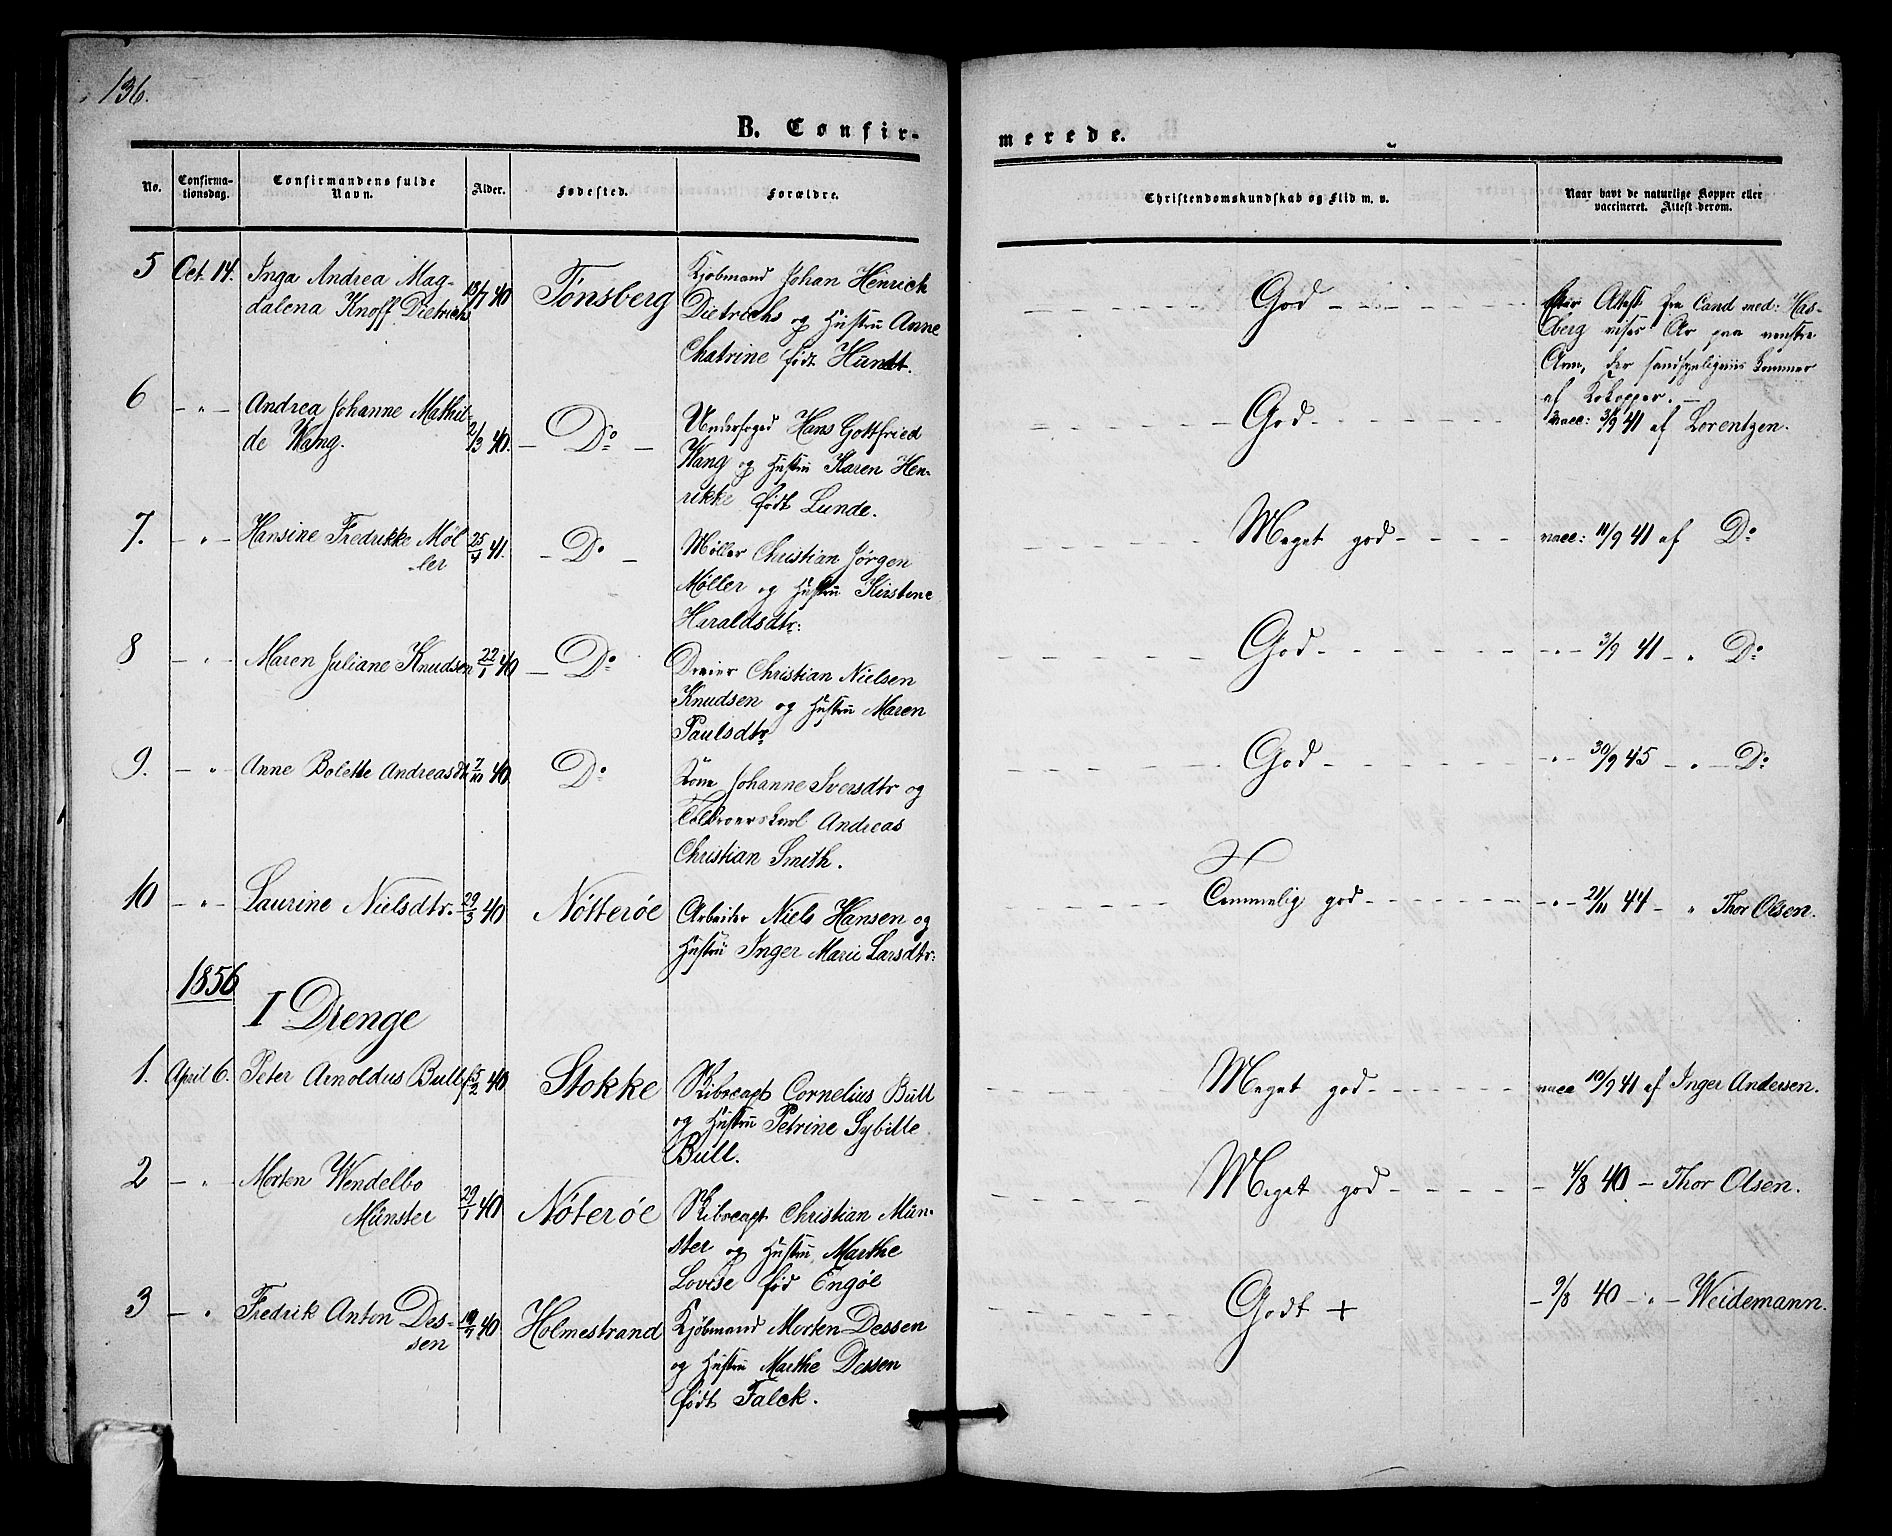 136.
B. Confir-
merede.
No.
Confirma-
tionsdag.
Confirmandens fulde
Navn.
Alder.
Fødested.
Forældre.
Christendomskundskab og Flid m. v.
Naar havt de naturlige Kopper eller
vaccineret. Attest derom.
5 Oct. 14. Inga Andrea Mag-
dalena Knoff Dietrichs
13/7 40 Tønsberg
Kjøbmand Johan Henrich
Dietrichs og Hustru Anne
Chatrine født Hundt.
God
Efter Attest fra Cand med: Has-
berg vises Ar paa venstre
Arm, der sandsynligviis kommer
af Kokopper.
6 - " - Andrea Johanne Mathil-
de Wang.
2/3 40. - Do -
Underfoged Hans Gottfried
Wang og Hustru Karen Hen-
rikke født Lunde.
God
vacc: 3/9 41 af Lorentzen.
7. - " - Hansine Fredrikke Møl-
ler
25/4 41. - Do -
Møller Christian Jørgen
Møller og Hustru Kirstine
Haraldsdtr:
Meget god
vacc: 11/9 41 af Do
8 - " - Maren Juliane Knudsen
22/1 40 - Do
Dreier Christian Nielsen
Knudsen og Hustru Maren
Paulsdtr
God
- " - 3/9 41 - " Do
9. - " Anne Bolette Andreasdtr
7/10 40 Do
Kone Johanne Iversdtr og
Andreas
Christian Smith.
God
" - 30/9 45 - " - Do
10 - " - Laurine Nielsdtr.
29/3 40 Nötteröe
Arbeider Niels Hansen og
Hustru Inger Marie Larsdtr:
Temmelig god
- " - 21/11 44 - " Thor Olsen.
1856
I Drenge
1. April 6. Peter Arnoldus Bull
5/2 40 Stokke
Skibscapt Cornelius Bull
og Hustru Petrine Sybille
Bull.
Meget god
vacc 10/9 41 af Inger Andersen.
2 - " - Morten Wendelbo
Münster
29/1 40 Nöteröe
Skibscapt Christian Mün-
ster og Hustru Marthe
Lovise fød Engöe
Meget god
- 4/8 40 - Thor Olsen.
3 - " Fredrik Anton Des-
sen
19/7 40 Holmestrand
Kjøbmand Morten Dessen
og Hustru Marthe Dessen
født Falck.
Godt +
- 9/8 40 - " - Weidemann.